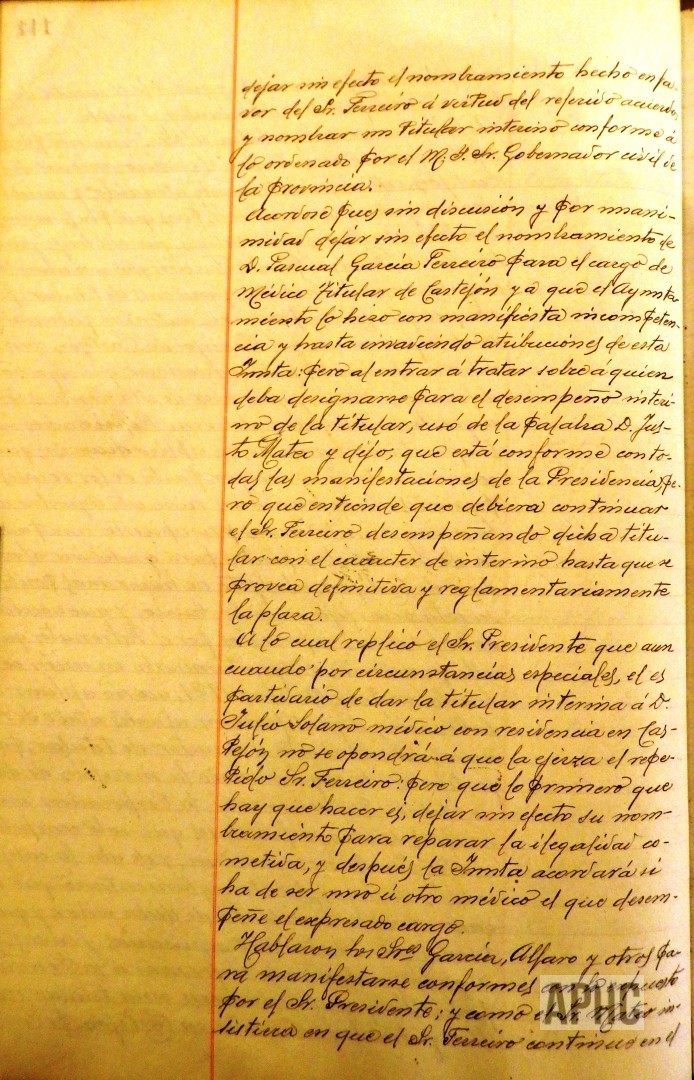 dejar sin efecto el nombramiento hecho en fa-
vor del Sr. Ferreiro á virtud del referido acuerdo,
y nombrar un titular interino conforme á
lo ordenado por el M. I. Sr. Gobernador civil de
la provincia.
Acordose pues sin discusión y por unani-
midad dejár sin efecto el nombramiento de
D. Pascual García Ferreiro para el cargo de
Médico Titular de Castejón y á que el Ayunta-
miento lo hizo con manifiesta incompeten-
cia y hasta invadiendo atribuciones de esta
Junta: pero al entrar á tratar sobre á quien
deba designarse para el desempeño interi-
no de la titular, usó de la palabra D. Jus-
to Mateo y dijo, que está conforme con to-
das las manifestaciones de la Presidencia, pe-
ro que entiende que debiera continuar
el Sr. Ferreiro desempeñando dicha titu-
lar con el carácter de interino hasta que se
provea definitiva y reglamentariamente
la plaza.
A lo cual replicó el Sr. Presidente que aun
cuando por circunstancias especiales, el es
partidario de dar la titular interina á D.
Julio Solano médico con residencia en Cas-
tejón no se opondrá á que la ejerza el repe-
tido Sr. Ferreiro: pero que lo primero que
hay que hacer es, dejar sin efecto su nom-
bramiento para reparar la ilegalidad co-
metida, y después la Junta acordará si
ha de ser uno ú otro médico el que desem-
peñe el expresado cargo.
Hablaron los Sres García, Alfaro y otros pa-
ra manifestarse conformes con lo expuesto
por el Sr. Presidente; y como el Sr. Mateo in-
sistiera en que el Sr. Ferreiro continue en el
APHC